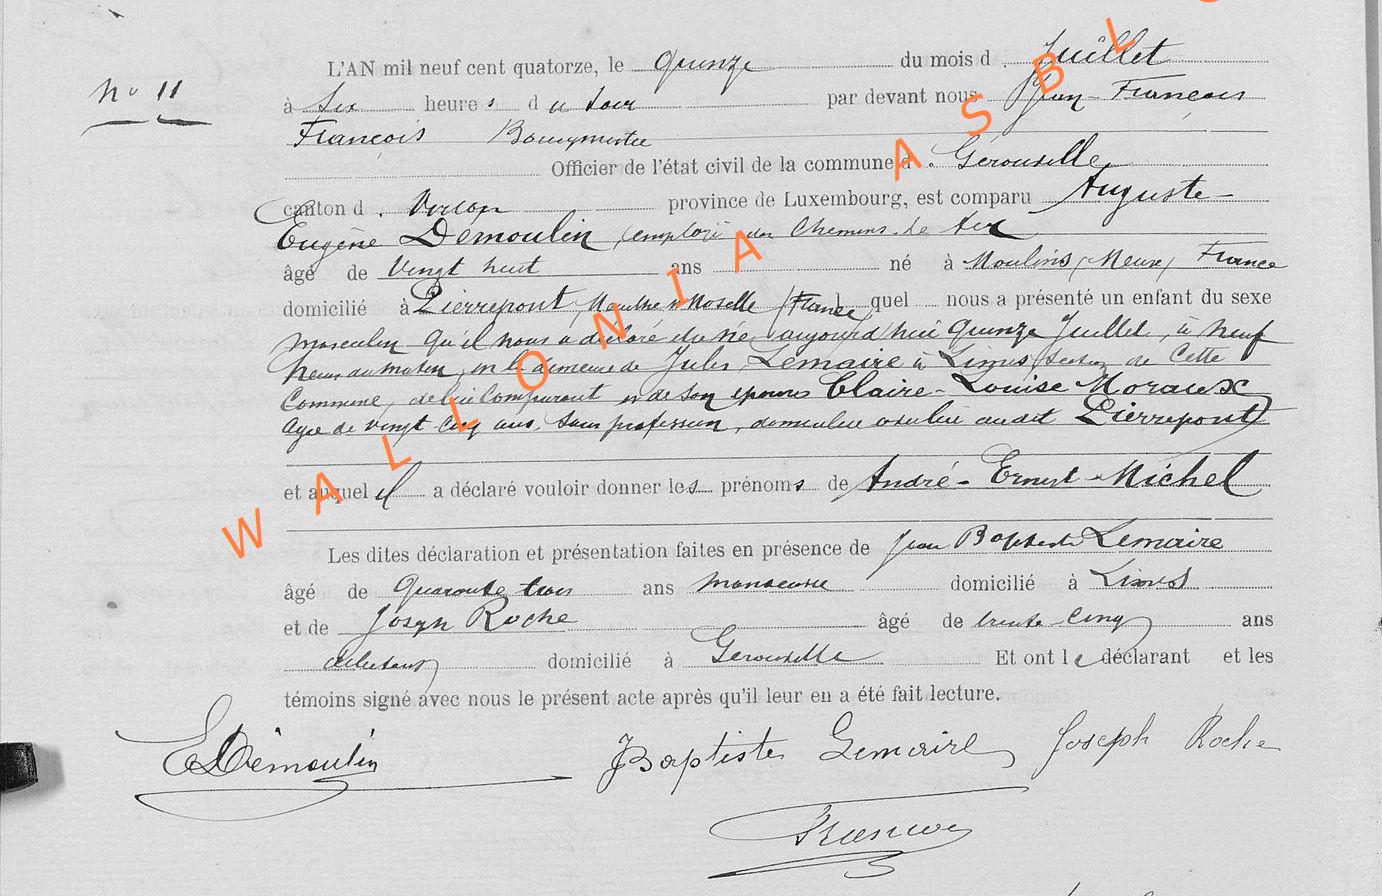 L'AN mil neuf cent quatorze, le quinze du mois d. Juillet
N° 11
à six heures du soir par devant nous Jean-François
François Bourgmestre
Officier de l'état civil de la commune d. Gérouville,
canton d. Virton province de Luxembourg, est comparu Auguste
Eugène Demoulin, employé des Chemins de fer
âgé de vingt huit ans né à Moulins, Meuse, France
domicilié à Pierrepont, Meurthe & Moselle (France) lequel nous a présenté un enfant du sexe
masculin qu'il nous a déclaré être né, aujourd'hui quinze Juillet, à neuf
heures du matin, en la demeure de Jules Lemaire à Limes, section de cette
Commune, de lui comparant et de son épouse Claire-Louise Moraux
âgée de vingt cinq ans, sans profession, domiciliée audit Pierrepont
et auquel il a déclaré vouloir donner les prénoms de André-Ernest-Michel
Les dites déclaration et présentation faites en présence de Jean Baptiste Lemaire
âgé de quarante trois ans manoeuvre domicilié à Limes
et de Joseph Roche âgé de trente-cinq ans
domicilié à Gérouville Et ont le déclarant et les
témoins signé avec nous le présent acte après qu'il leur en a été fait lecture.
EDemoulin Baptiste Lemaire Joseph Roche
François
WALLONIA ASBL